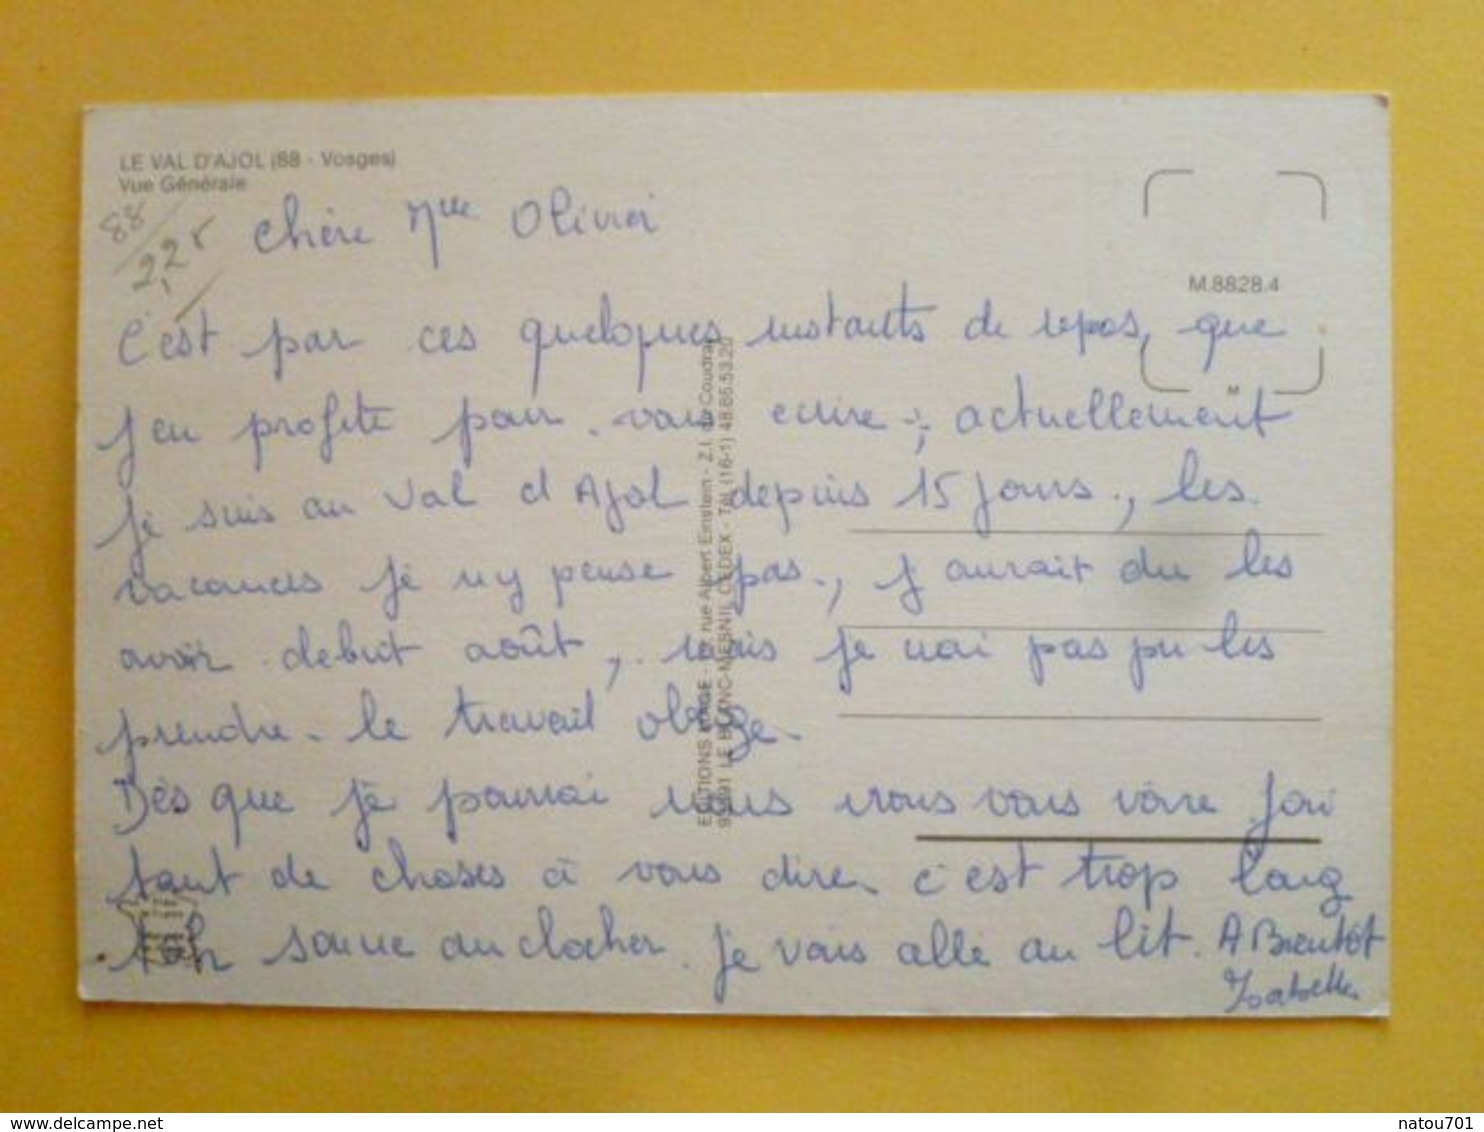 LE VAL D'AJOL (88 - Vosges)
Vue Générale
88
2,2
M.8828.4
M
Chère Mlle Olivier
C'est par ces quelques instants de repos, que
j'en profite pour vous ecrire ; actuellement
je suis au Val d'Ajol depuis 15 jours., les
vacances je n'y pense pas., j'aurait du les
avoir debut août, mais je nai pas pu les
prendre. le travail oblige.
Dès que je pourrai nous irons vous voire. J'ai
tant de choses à vous dire. c'est trop long
sonne au clocher. Je vais allé au lit. A Bientôt
Isabelle.
EDITIONS MAGE - rue Albert Einstein - Z.I. du Coudray
LE BLANC-MESNIL CEDEX - Tél. (16-1) 48.65.53.20
natou701